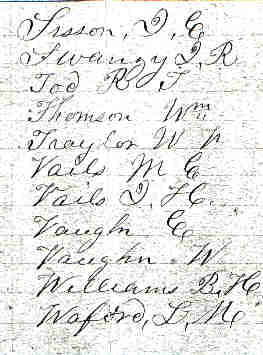 Sisson, J, E
Swangy J, R
Tod R T
Thomson Wm
Traylor W P
Vails M E
Vails J. H.
Vaughn E
Vaughn W
Williams B. H.
Waford, L, M